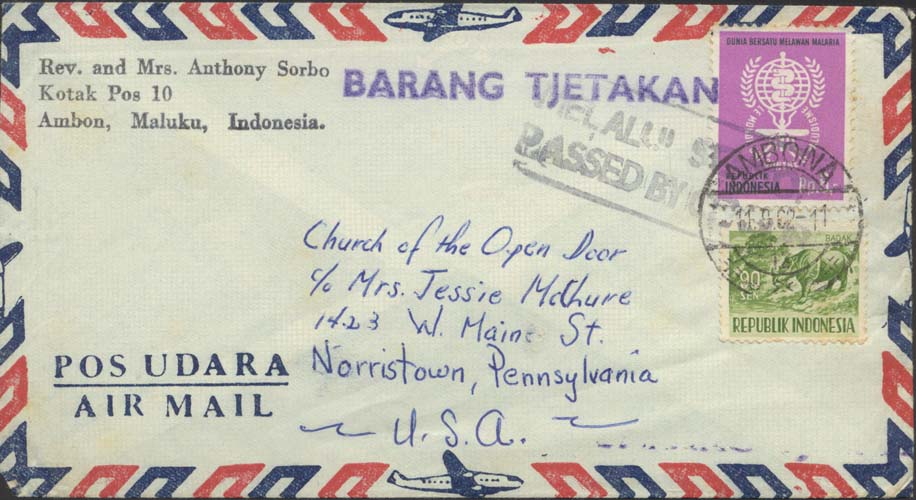 Rev. and Mrs. Anthony Sorbo
Kotak Pos 10
Ambon, Maluku, Indonesia.
BARANG TJETAKAN
PASSED BY
DUNIA BERSATU MELAWAN MALARIA
REPUBLIK
INDONESIA
AMBOINA
BADAK
90
SEN
REPUBLIK INDONESIA
Church of the Open Door
c/o Mrs. Jessie McClure
1423 W. Main St.
Norristown, Pennsylvania
U.S.A.
POS UDARA
AIR MAIL